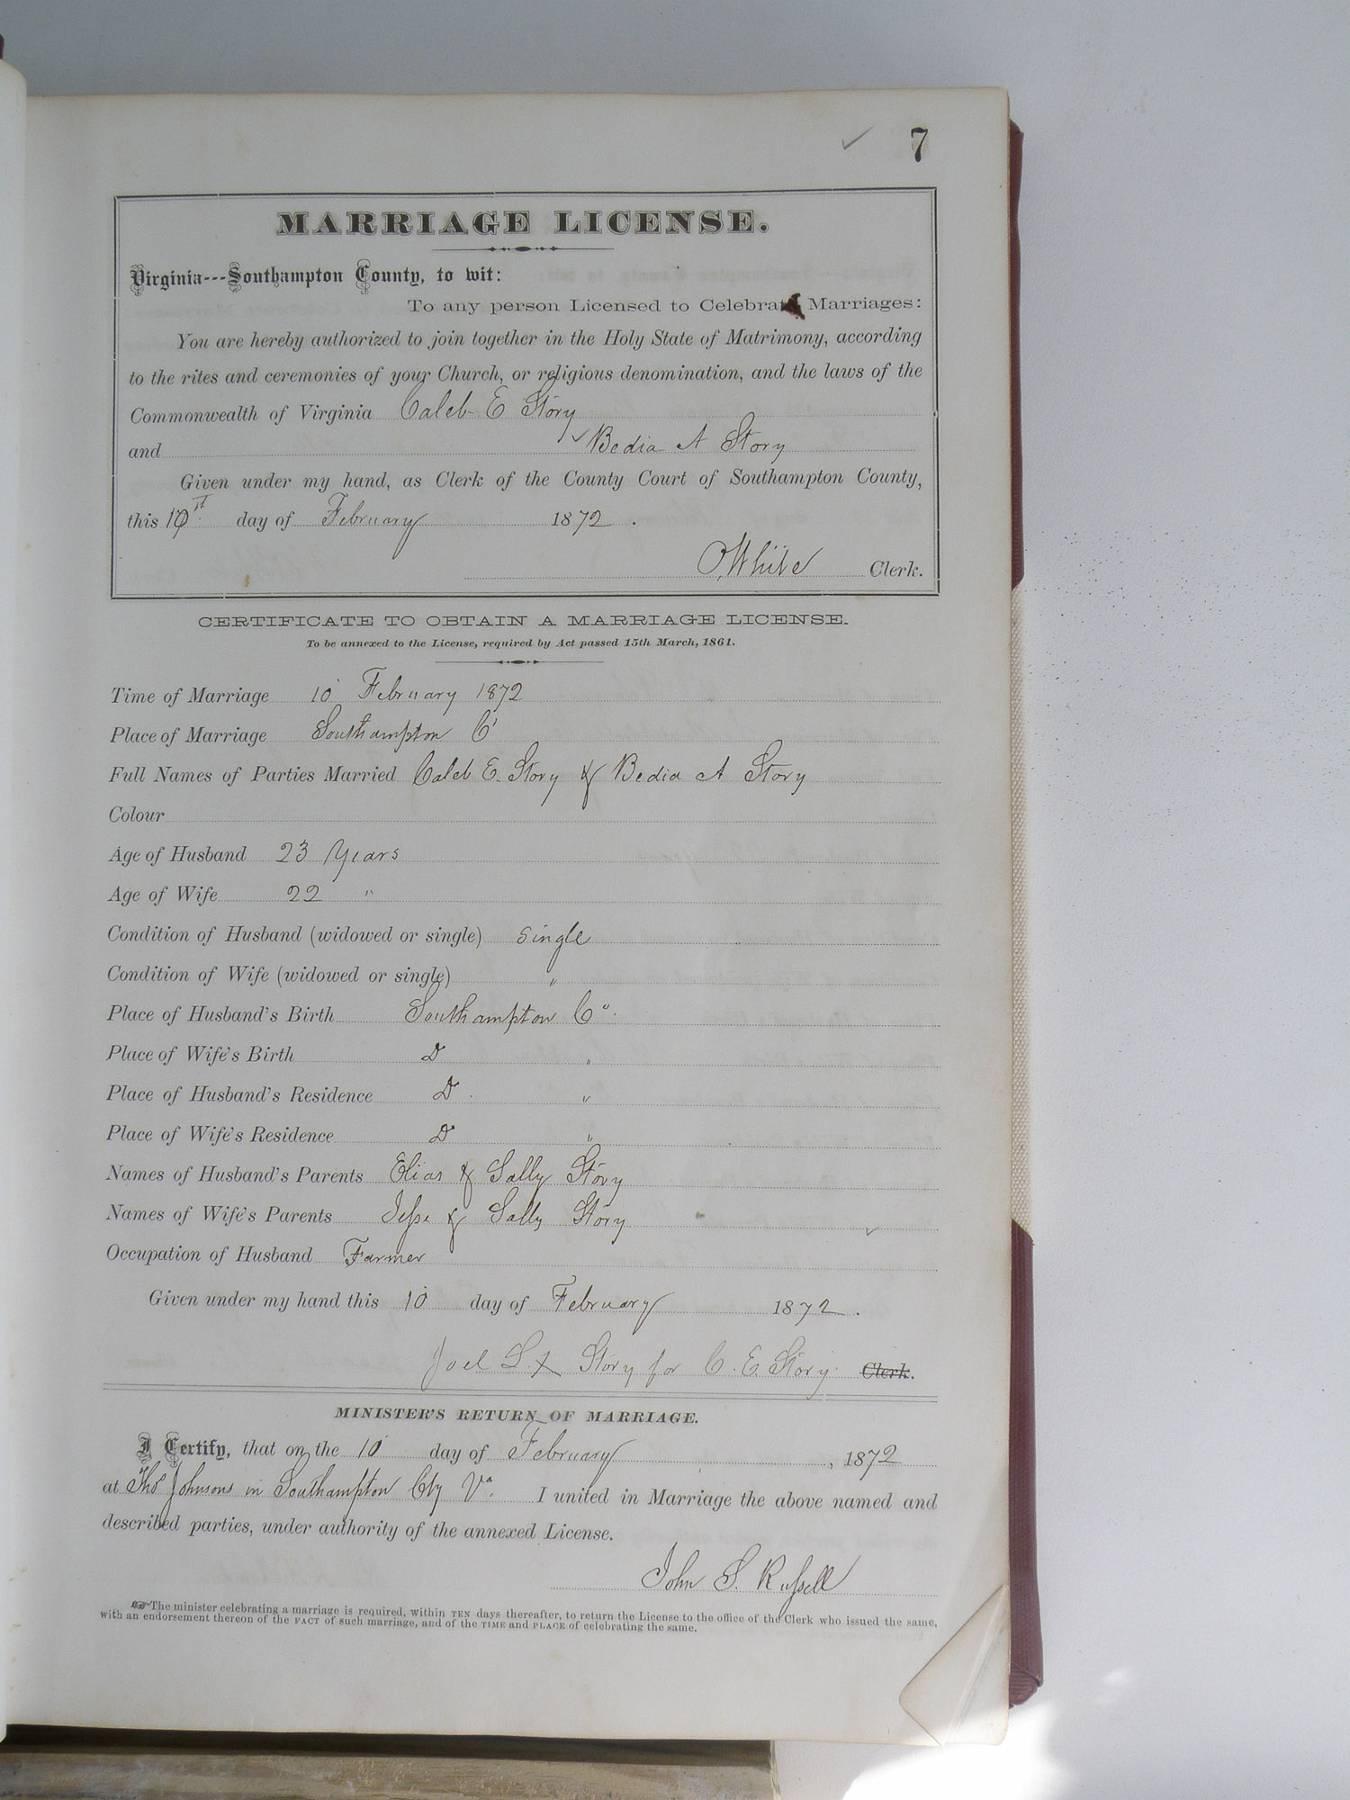 7
MARRIAGE LICENSE.
Virginia---Southampton County, to wit:
To any person Licensed to Celebrate Marriages:
You are hereby authorized to join together in the Holy State of Matrimony, according
to the rites and ceremonies of your Church, or religious denomination, and the laws of the
Commonwealth of Virginia Caleb E Story
and Bedia A Story
Given under my hand, as Clerk of the County Court of Southampton County,
this 10 day of February 1872.
White Clerk.
CERTIFICATE TO OBTAIN A MARRIAGE LICENSE.
To be annexed to the License, required by Act passed 15th March, 1861.
Time of Marriage 10 February 1872
Place of Marriage Southampton C
Full Names of Parties Married Caleb E. Story & Bedia A Story
Colour
Age of Husband 23 Years
Age of Wife 22 "
Condition of Husband (widowed or single) single
Condition of Wife (widowed or single) "
Place of Husband's Birth Southampton Co.
Place of Wife's Birth Do "
Place of Husband's Residence Do "
Place of Wife's Residence Do "
Names of Husband's Parents Elias & Sally Story
Names of Wife's Parents Jesse & Sally Story
Occupation of Husband Farmer
Given under my hand this 10 day of February 1872.
Joel S. x Story for C. E. Story Clerk.
MINISTER'S RETURN OF MARRIAGE.
I Certify, that on the 10 day of February, 1872
at Thos Johnsons in Southampton Cty Va. I united in Marriage the above named and
described parties, under authority of the annexed License.
John S. Russell
☞ The minister celebrating a marriage is required, within TEN days thereafter, to return the License to the office of the Clerk who issued the same,
with an endorsement thereon of the FACT of such marriage, and of the TIME and PLACE of celebrating the same.